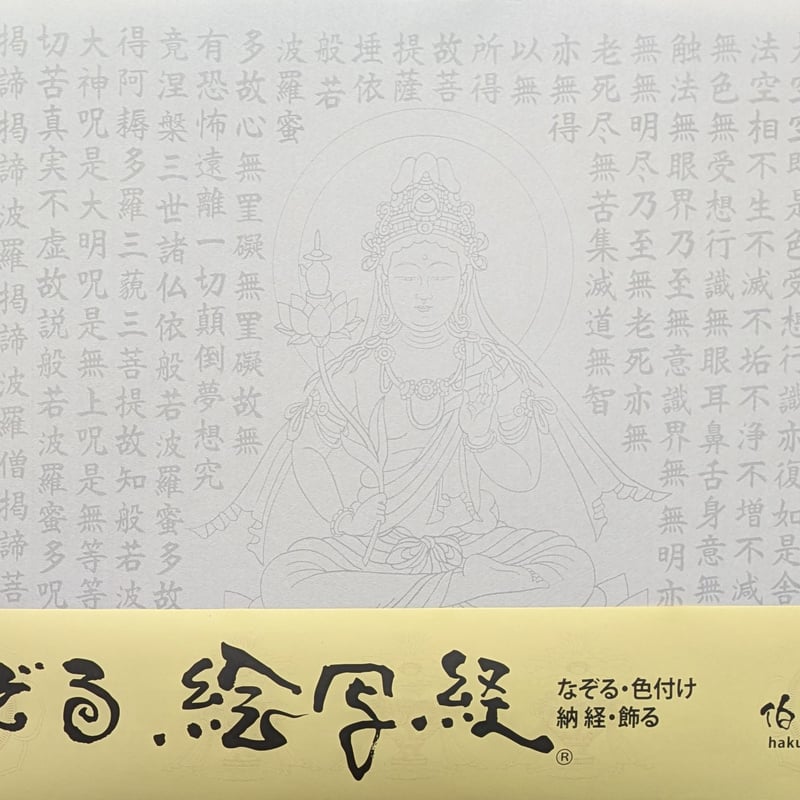 空空即是色受想行識亦復如是舎
法空相不生不滅不垢不浄不増不減
無色無受想行識無眼耳鼻舌身意無
触法無眼界乃至無意識界無無明亦
無無明尽乃至無老死亦無
老死尽無苦集滅道無智
亦無得
以無
所得
故菩
提薩
埵依
般若
波羅蜜
多故心無罣礙無罣礙故無
有恐怖遠離一切顛倒夢想究
竟涅槃三世諸仏依般若波羅蜜多故
得阿耨多羅三藐三菩提故知般若波
大神呪是大明呪是無上呪是無等等
切苦真実不虚故説般若波羅蜜多呪
掲諦掲諦波羅掲諦波羅僧掲諦菩
ぞる.絵写経®
なぞる・色付け
納経・飾る
伯
haku